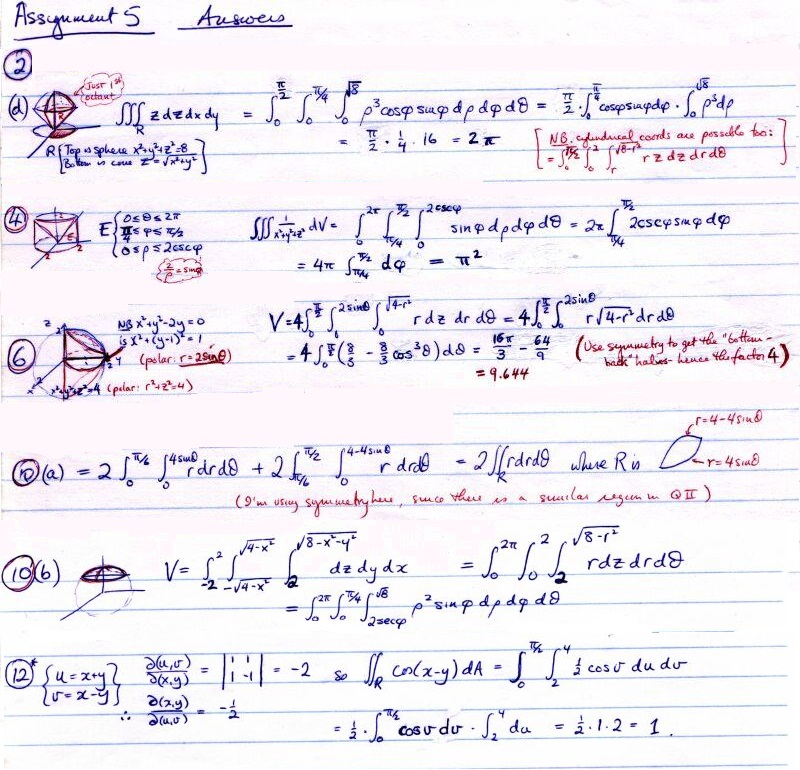 Assignment 5 Answers
②
(d) Just 1st octant ∭_R z dz dx dy = ∫_0^{π/2} ∫_0^{π/4} ∫_0^{√8} ρ³cosφ sinφ dρ dφ dθ = π/2 · ∫_0^{π/4} cosφ sinφ dφ · ∫_0^{√8} ρ³dρ
= π/2 · 1/4 · 16 = 2π
R { Top is sphere x²+y²+z²=8
Bottom is cone z=√x²+y² }
[ NB. cylindrical coords are possible too:
= ∫_0^{π/2} ∫_0^2 ∫_r^{√8-r²} r z dz dr dθ ]
④ E { 0≤θ≤2π
π/4≤φ≤π/2
0≤ρ≤2cscφ
2/ρ = sinφ
∭_E 1/(x²+y²+z²) dV = ∫_0^{2π} ∫_{π/4}^{π/2} ∫_0^{2cscφ} sinφ dρ dφ dθ = 2π ∫_{π/4}^{π/2} 2cscφ sinφ dφ
= 4π ∫_{π/4}^{π/2} dφ = π²
⑥ NB x²+y²-2y=0
is x²+(y-1)²=1
(polar: r=2sinθ)
x²+y²+z²=4 (polar: r²+z²=4)
V = 4∫_0^{π/2} ∫_0^{2sinθ} ∫_0^{√4-r²} r dz dr dθ = 4∫_0^{π/2} ∫_0^{2sinθ} r√4-r² dr dθ
= 4∫_0^{π/2} (8/3 - 8/3 cos³θ) dθ = 16π/3 - 64/9
= 9.644
(Use symmetry to get the "bottom-
back" halves - hence the factor 4)
⑩(a) = 2∫_0^{π/6} ∫_0^{4sinθ} r dr dθ + 2∫_{π/6}^{π/2} ∫_0^{4-4sinθ} r dr dθ = 2∬_R r dr dθ where R is r=4-4sinθ
r=4sinθ
(I'm using symmetry here, since there is a similar region in QII)
⑩(b) V = ∫_{-2}^2 ∫_{-√4-x²}^{√4-x²} ∫_2^{√8-x²-y²} dz dy dx = ∫_0^{2π} ∫_0^2 ∫_2^{√8-r²} r dz dr dθ
= ∫_0^{2π} ∫_0^{π/4} ∫_{2secφ}^{√8} ρ² sinφ dρ dφ dθ
⑫* { u=x+y
v=x-y }
∂(u,v)/∂(x,y) = |1 1; 1 -1| = -2 so ∬_R cos(x-y)dA = ∫_0^{π/2} ∫_2^4 ½ cos v du dv
∴ ∂(x,y)/∂(u,v) = -½
= ½ · ∫_0^{π/2} cos v dv · ∫_2^4 du = ½·1·2 = 1.